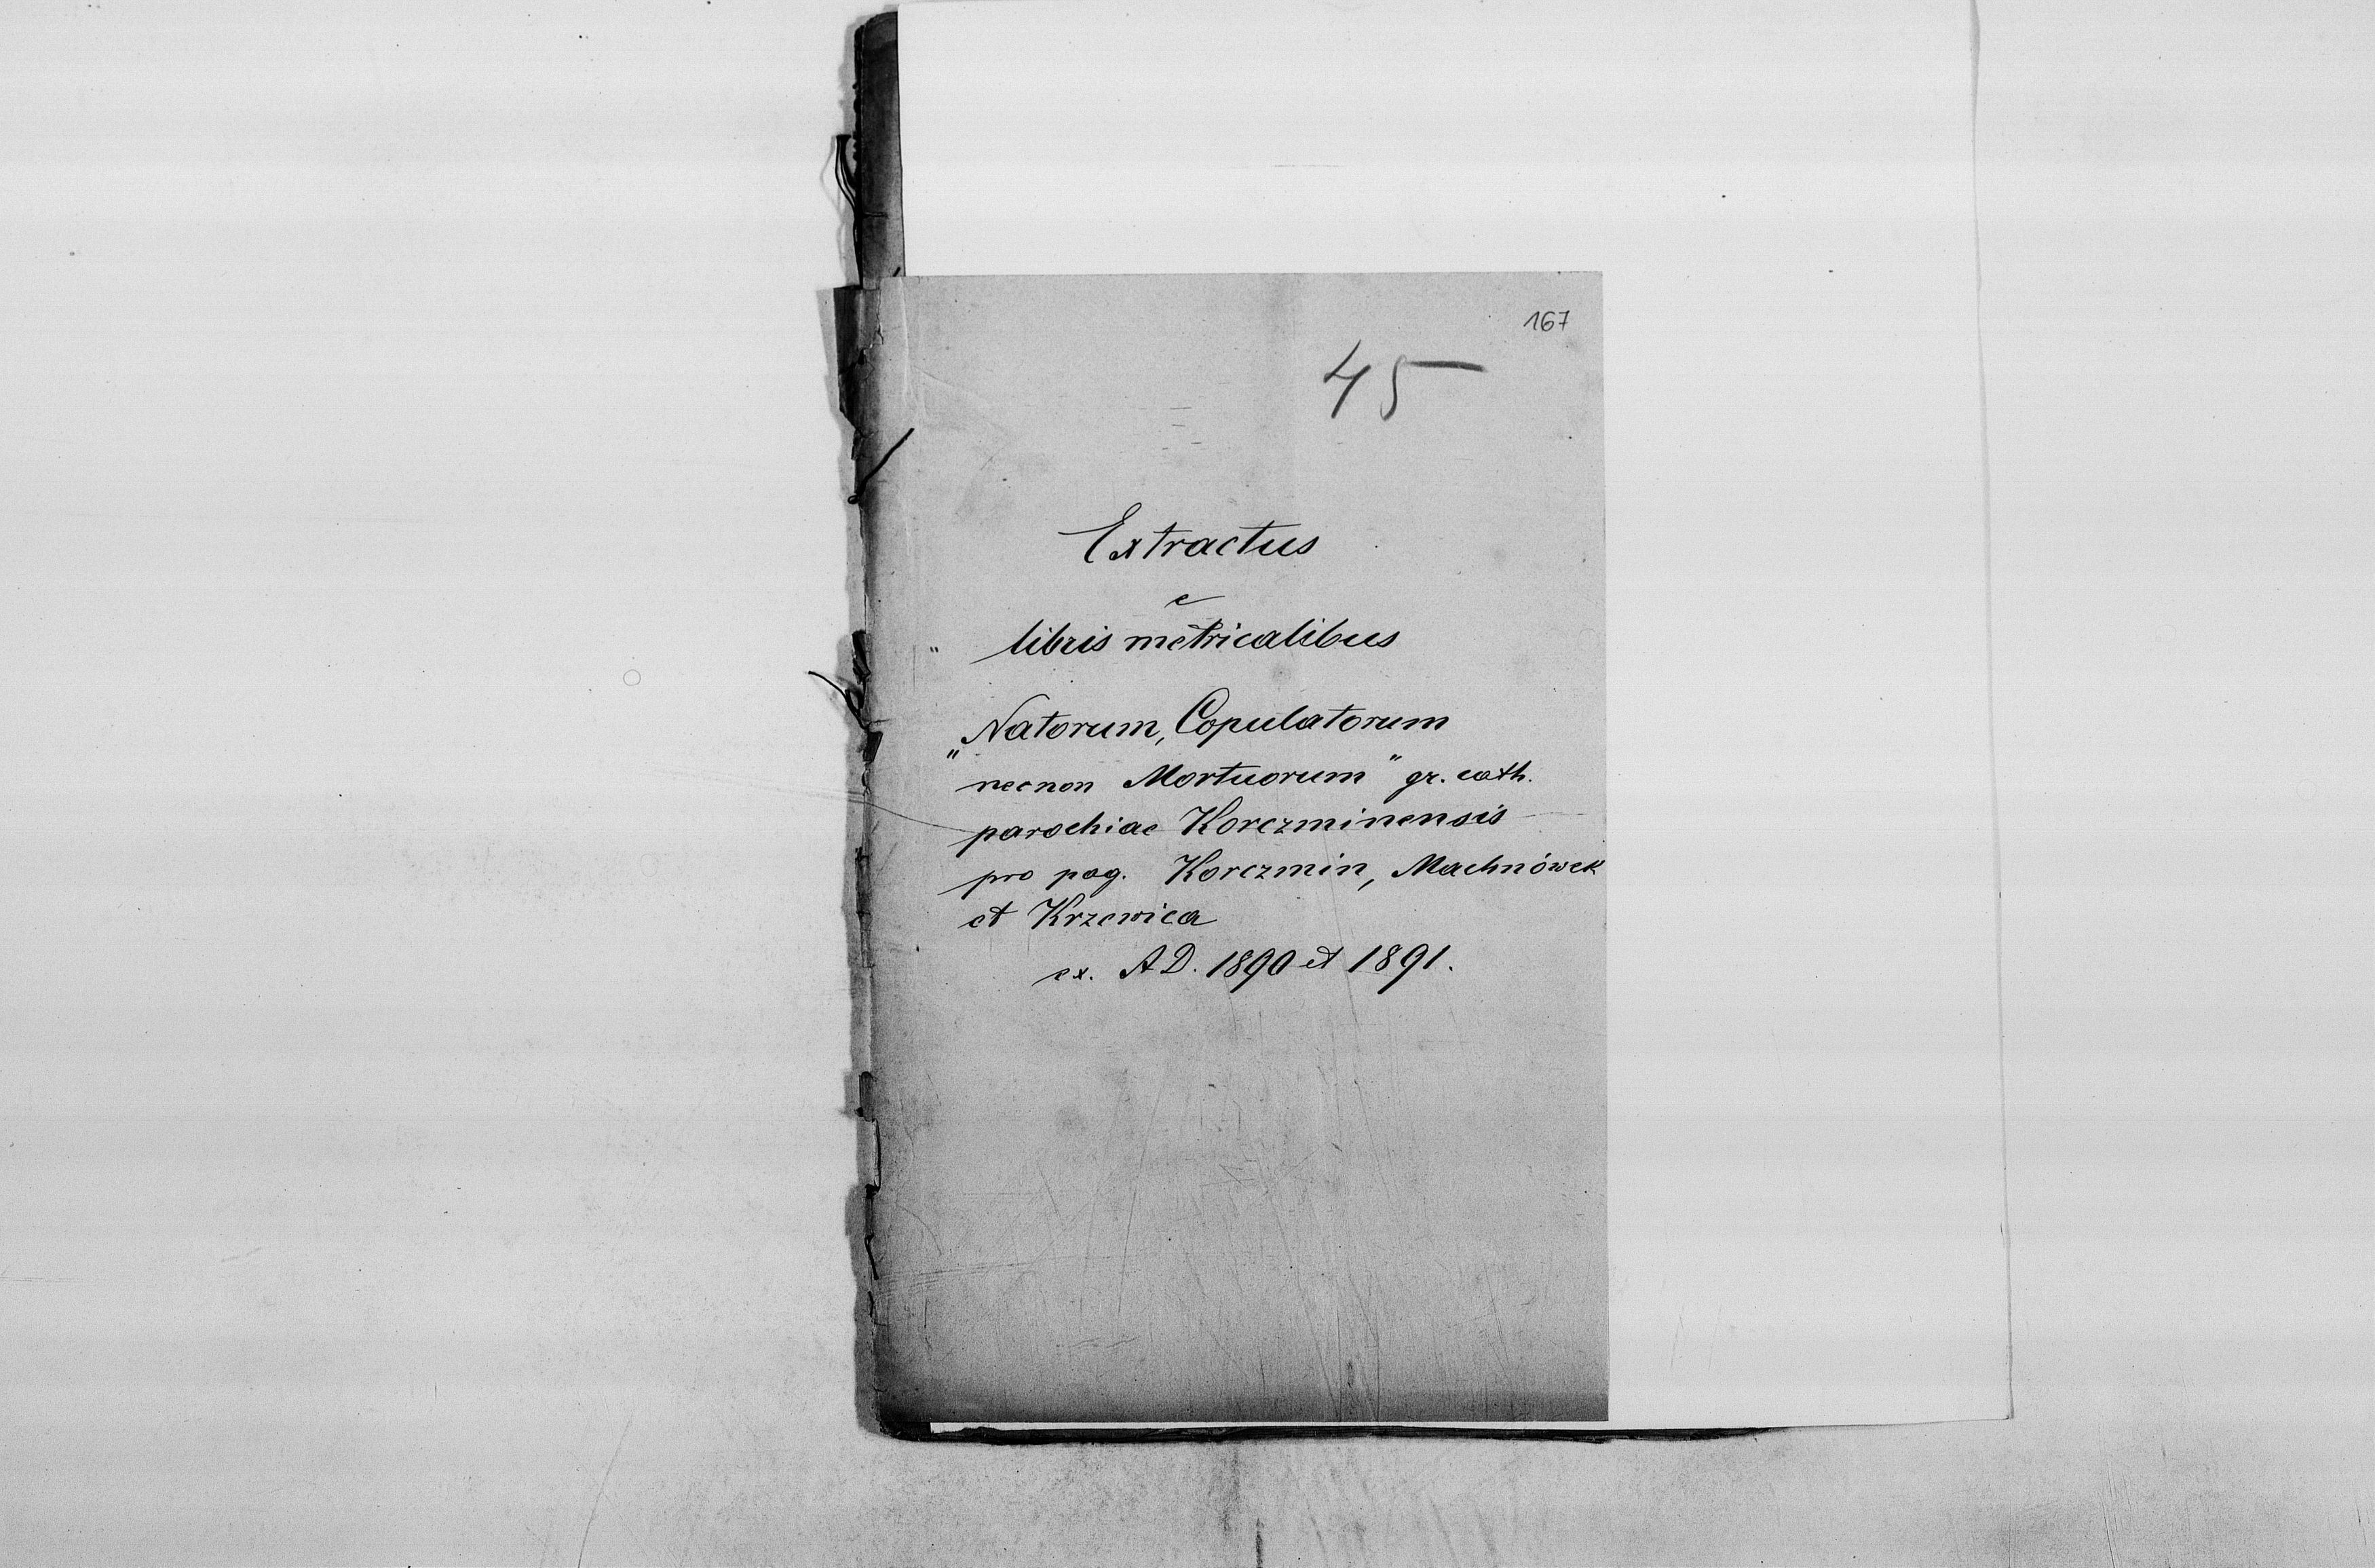 167
45
Extractus
e
" libris metricalibus
„Natorum, Copulatorum
necnon Mortuorum" gr. cath.
parochiae Korczminensis
pro pag. Korczmin, Machnówek
et Krzewica
ex. A D. 1890 et 1891.